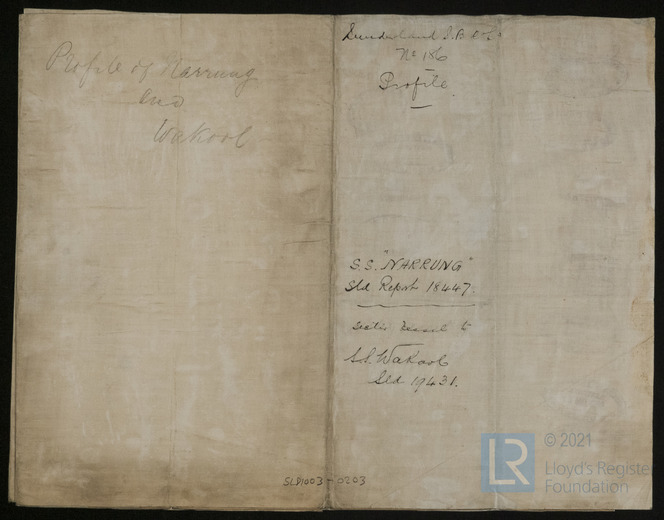 Profile of Narrung
and
Wakool
Sunderland S.B. Co.
No 186
Profile
S.S. "NARRUNG"
Sld Report 18447.
Sister Vessel to
S.S. Wakool
Sld 19431.
SLD1003-0203
LR
© 2021
Lloyd's Register
Foundation